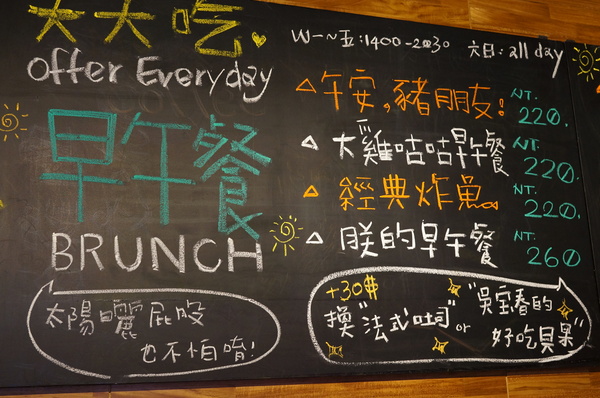 天天吃
offer Everyday
早午餐
BRUNCH
太陽曬屁股
也不怕唷!
W一~五:1400-2030 六日:all day
午安,豬朋友! NT. 220.
大雞咕咕早午餐 NT. 220.
經典炸魚 NT. 220.
朕的早午餐 NT. 260
+30$
換"法式吐司" or "吳宝春的
好吃貝果"